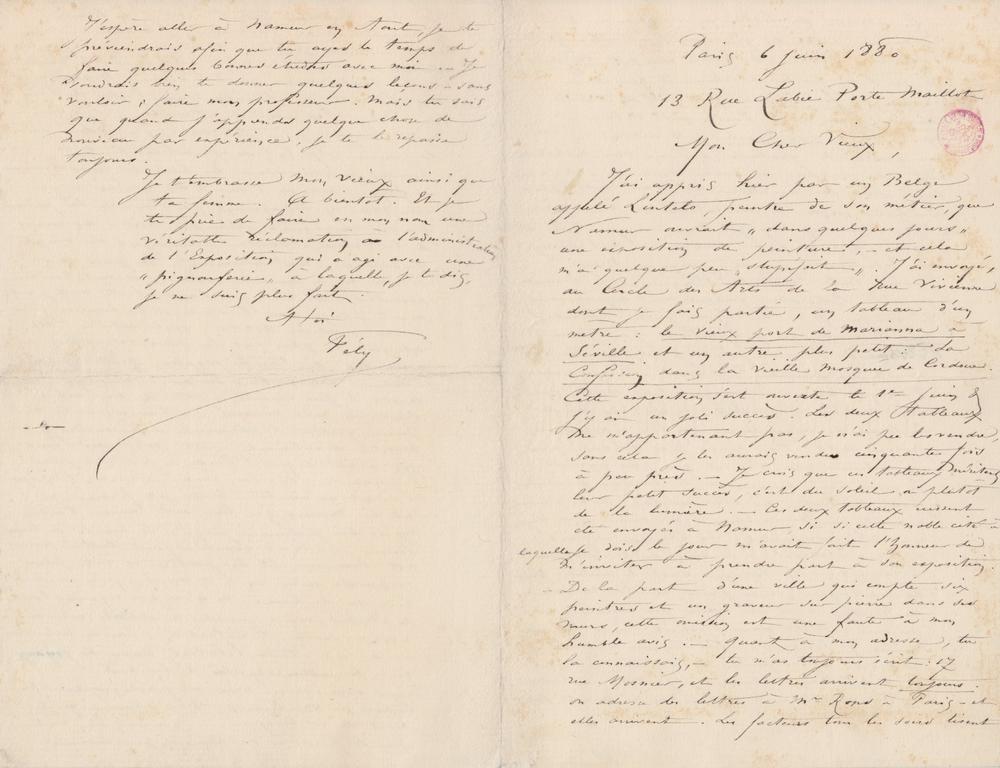 Paris 6 juin 1880
13 Rue Labie Porte Maillot
Mon Cher Vieux,
J'ai appris hier par un Belge
appelé Lintelo, peintre de son métier, que
Namur ouvrait „ dans quelques jours „
une exposition de peinture, – et cela
m'a quelque peu „ stupéfait „. J'ai envoyé,
au Cercle des Arts de la Rue Vivienne
dont je fais partie, un tableau d'un
metre : le vieux port de Marianna à
Séville et un autre plus petit : La
Confession dans la vieille Mosquée de Cordoue.
Cette exposition s'est ouverte le 1er juin &
j'y ai un joli succès. Les deux tableaux
ne m'appartenant pas, je n'ai pu les vendre,
sans cela je les aurais vendus cinquante fois
à peu près. – Je crois que ces tableaux méritent
leur petit succès, c'est du soleil ou plutot
de la lumière. – Ces deux tableaux eussent
été envoyés à Namur si si cette noble cité à
laquelle je dois le jour m'avait fait l'honneur de
m'inviter à prendre part à son exposition.
– De la part d'une ville qui compte six
peintres et un graveur sur pierre dans ses
murs, cette omission est une faute à mon
humble avis. – Quant à mon adresse, tu
la connaissais, – tu m'as toujours écrit : 17
rue Mosnier, et les lettres arrivent toujours.
on adresse des lettres à Mr Rops à Paris – et
elles arrivent. Les facteurs tous les soirs lisent
J'espère aller à Namur en Aout, je te
préviendrais afin que tu ayes le temps de
faire quelques bonnes études avec moi. Je
voudrais bien te donner quelques leçons – sans
vouloir faire mon professeur. Mais tu sais
que quand j'apprends quelque chose de
nouveau par expérience, je te le repasse
toujours.
Je t'embrasse mon vieux ainsi que
ta femme. A bientot. Et je
te prie de faire en mon nom une
véritable réclamation à l'administration
de l'Exposition qui a agi avec une
„ pignouferie „ à laquelle, je te dis,
je ne suis plus fait.
A toi
Fély